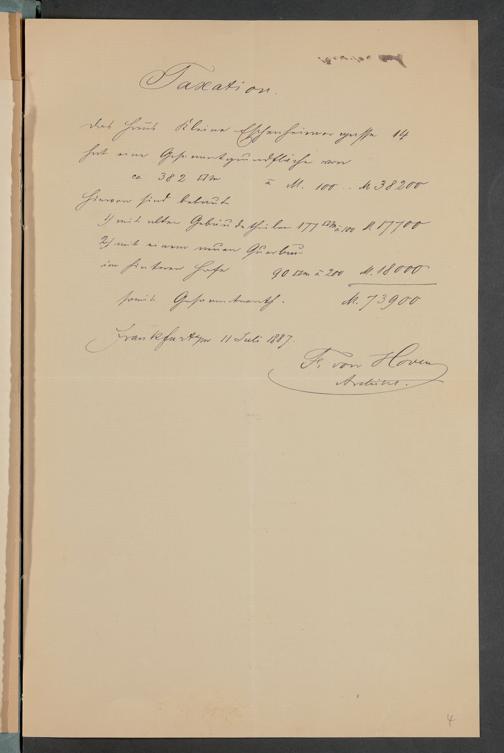 Taxation.
Das Haus Kleine Eschenheimergasse 14
hat eine Gesammtgrundfläche von
ca 382 □m à M. 100 .. M 38200
Hiervon sind bebaut
1) mit alten Gebäudetheilen 177 □m à 100 M. 17700
2) mit einem neuen Querbau
im hinteren Hofe 90 □m à 200 M. 18000
somit Gesammtwerth. M. 73900
Frankfurt a/m 11 Juli 1887.
F. von Hoven
Architect.
4